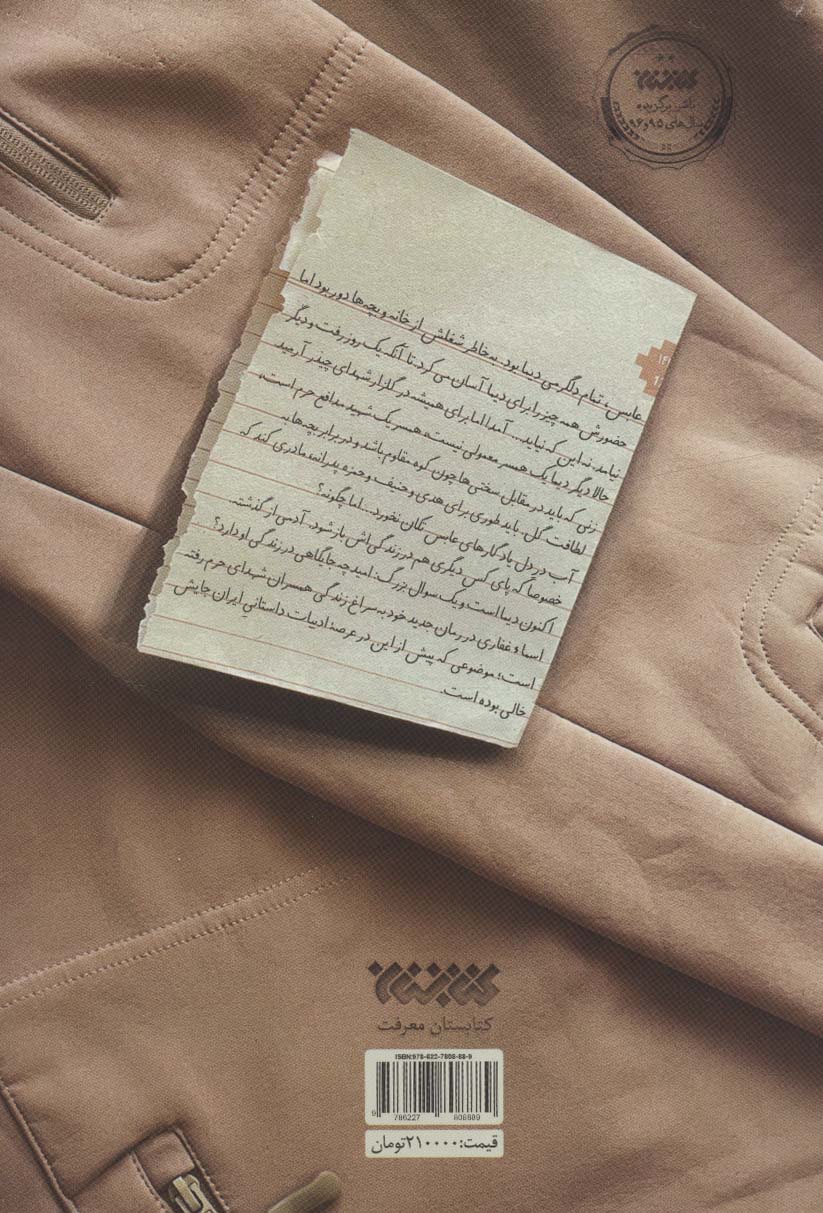 کتابستان
ناشر برگزیده
سال‌های ۹۵ و ۹۶
عابس، تمام دلگرمی دیبا بود. به‌خاطر شغلش از خانه و بچه‌ها دور بود اما
حضورش همه چیز را برای دیبا آسان می‌کرد تا آنکه یک روز رفت و دیگر
نیامد. نه این که نیاید... آمد! اما برای همیشه در گلزار شهدای چیذر آرمید.
حالا دیگر دیبا یک همسر معمولی نیست، همسر یک شهید مدافع حرم است.
زنی که باید در مقابل سختی‌ها چون کوه مقاوم باشد و در برابر بچه‌ها، به
لطافت گل. باید طوری برای هدی و حنیف و حمزه پدرانه، مادری کند که
آب در دل یادگارهای عابس تکان نخورد... اما چگونه؟
خصوصاً که پای کس دیگری هم در زندگی‌اش باز شود. آدمی از گذشته.
اکنون دیبا است و یک سوال بزرگ: امید چه جایگاهی در زندگی او دارد؟
اسماء غفاری در رمان جدید خود به سراغ زندگی همسران شهدای حرم رفته
است؛ موضوعی که پیش از این در عرصهٔ ادبیات داستانی ایران جایش
خالی بوده است.
کتابستان
کتابستان معرفت
ISBN:978-622-7808-88-9
9 786227 808889
قیمت: ۲۱۰۰۰۰ تومان